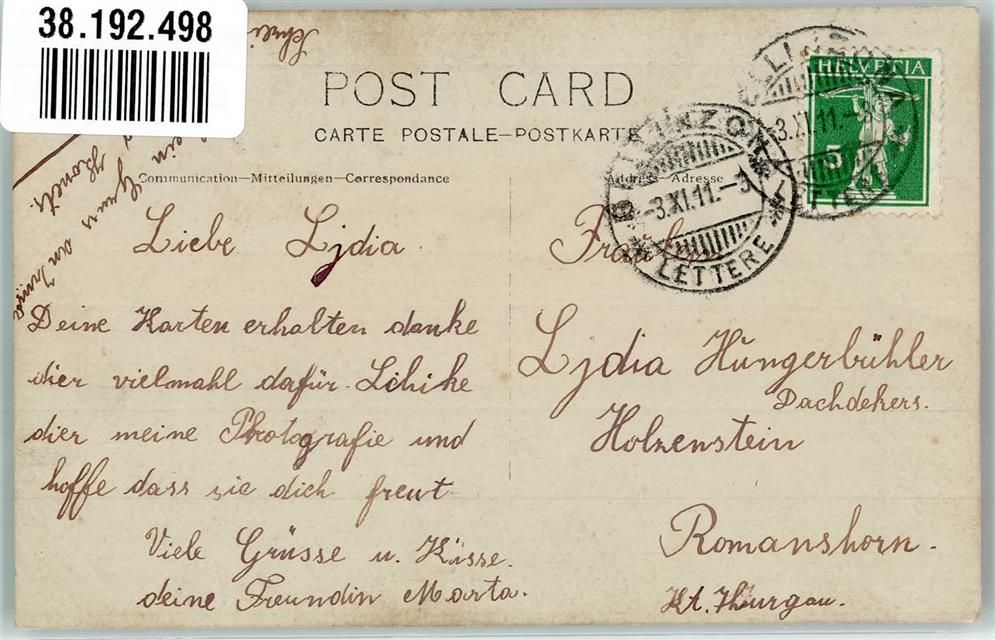 38.192.498
POST CARD
CARTE POSTALE—POSTKARTE
Communication—Mitteilungen—Correspondance
Address—Adresse
HELVETIA
5
BELLINZONA
-3.XI.11.-3
LETTERE
BELLINZONA
3.XI.11.-3
LETTERE
Liebe Lydia.
Deine Karten erhalten danke
dier vielmahl dafür. Schike
dier meine Photografie und
hoffe dass sie dich freut
Viele Grüsse u. Küsse.
deine Freundin Marta.
Fräulein
Lydia Hungerbühler
Dachdekers.
Holzenstein
Romanshorn.
Kt. Thurgau.